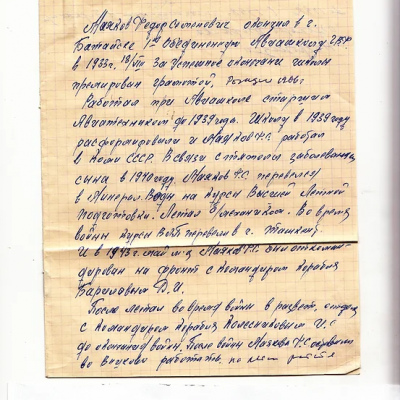 Маяков Федор Степанович окончил в г.
Батайске 1ую Объединенную Авиашколу ГВФ
в 1933г. 18/VIII За успешное окончание школы
премирован грамотой,
Работал при Авиашколе старшим
Авиатехником до 1939 года. Школу в 1939 году
расформировали и Маяков Ф.С. работал
в Коми СССР. В связи с тяжелым заболеванием
сына в 1940 году Маяков Ф.С. перевелся
в Минерал. Воды на курсы Высшей Летной
подготовки. Летал б/механиком. Во время
войны курсы ВЛП перевели в г. Ташкент
И в 1943г. май м-ц Маяков Ф.С. был откоман-
дирован на фронт с командиром корабля
Бариловым Д.И.
После летал во время войны в развет,
с командиром корабля Колесниковым И.С.
до окончания войны. После войны Маякова Ф.С. оставили
во Внуково работать, но